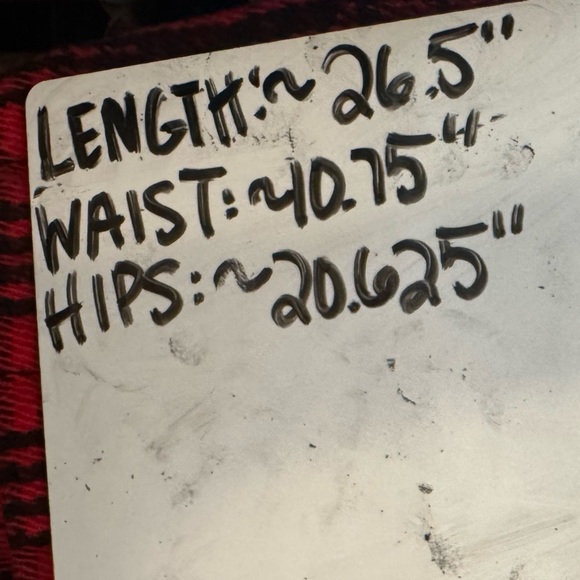 LENGTH:~ 26.5"
WAIST: ~40.75"
HIPS: ~20.625"